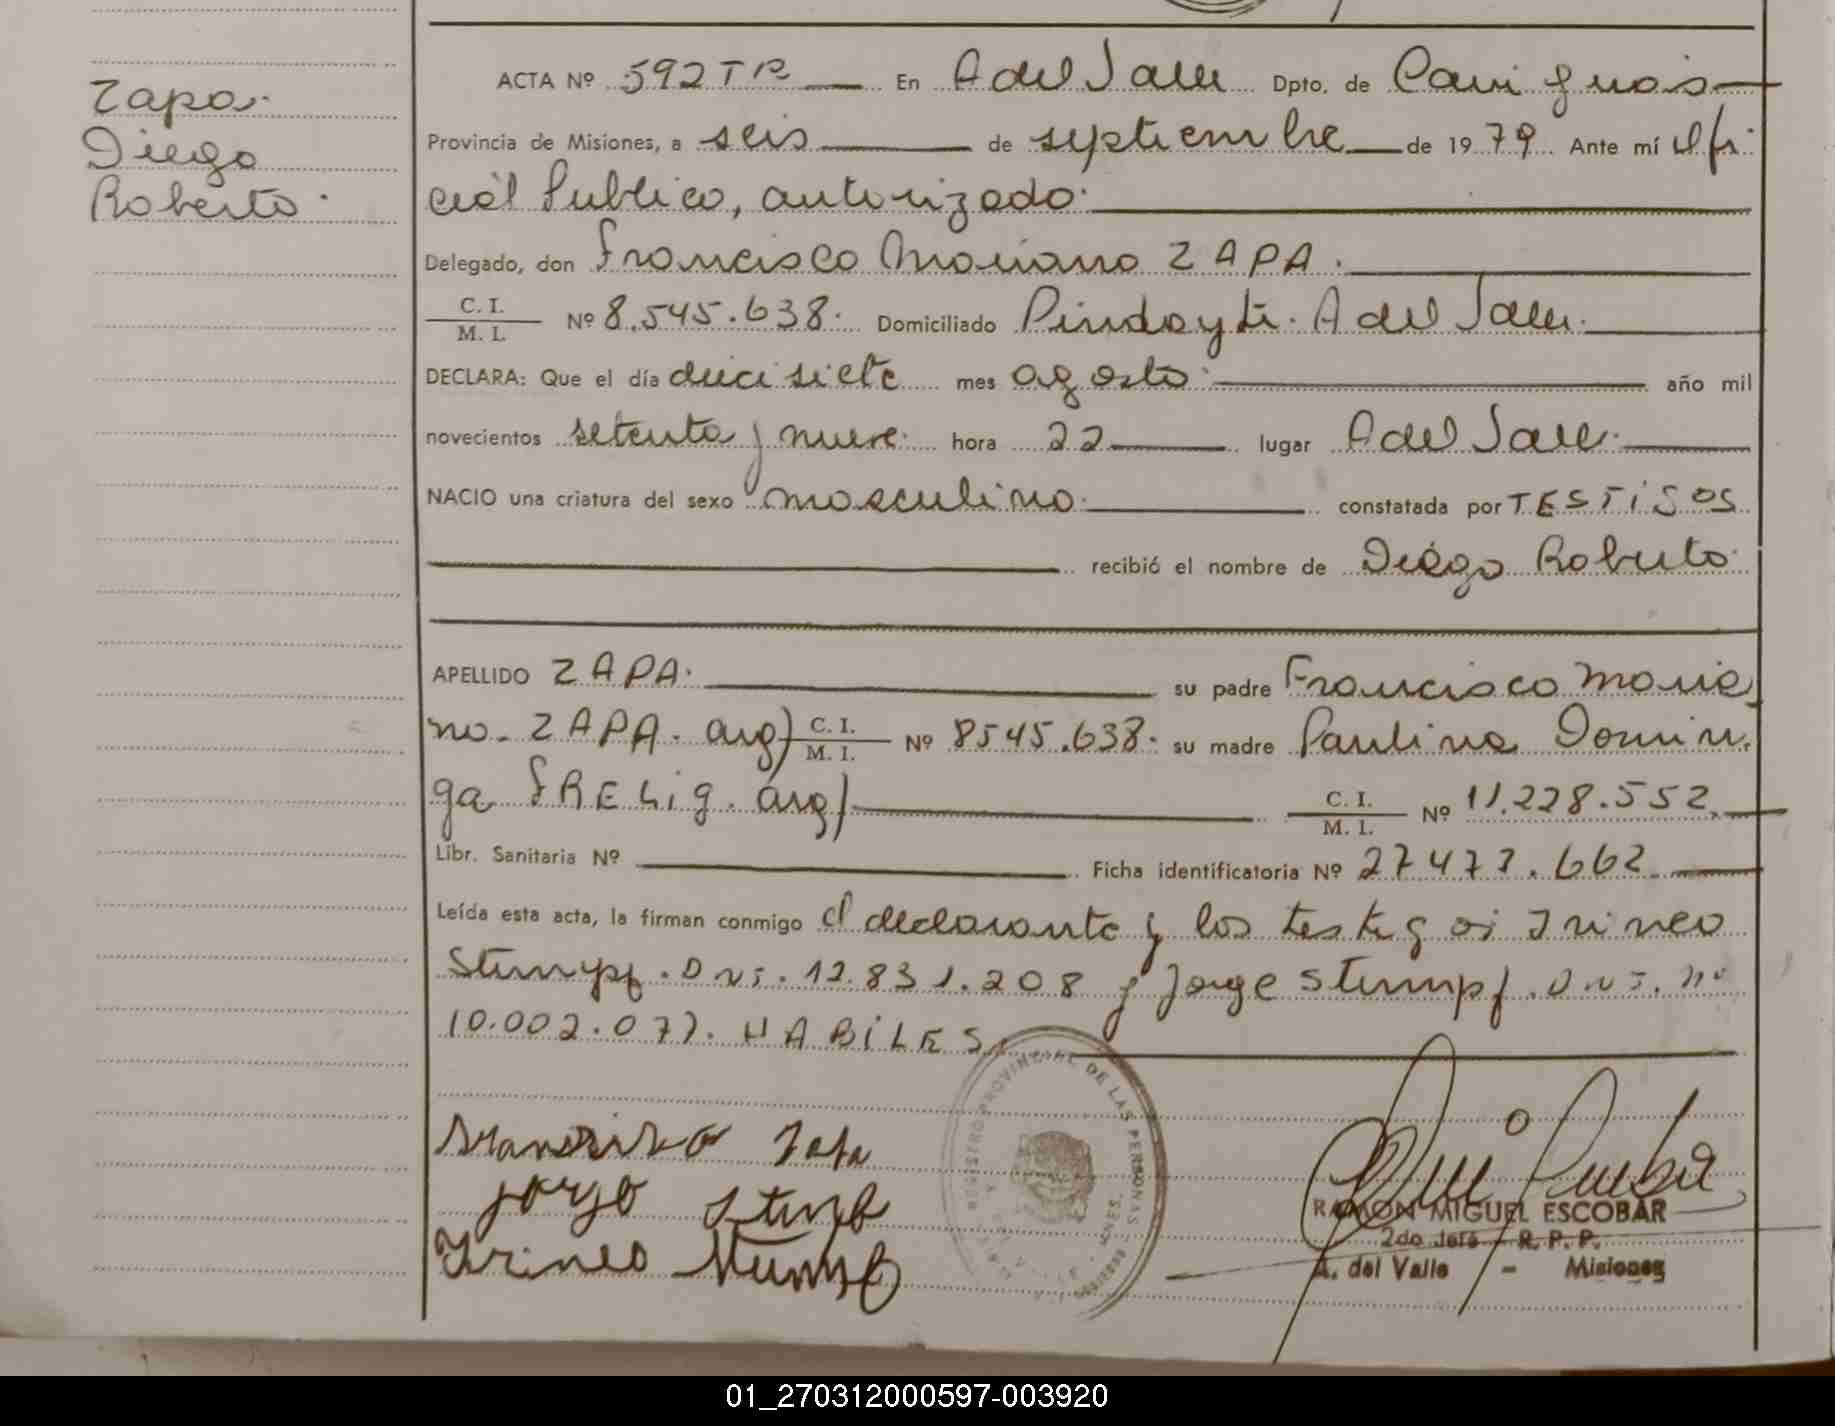 Zapa.
Diego
Roberto.
ACTA Nº 592 TR En A del Valle Dpto. de Cainguás
Provincia de Misiones, a seis de septiembre de 1979 Ante mí Ofi
cial Publico, autorizado.
Delegado, don Francisco Mariano ZAPA.
C. I.
M. I. Nº 8.545.638. Domiciliado Pindayti. A del Valle.
DECLARA: Que el día diecisiete mes agosto. año mil
novecientos setenta y nueve. hora 22 lugar A del Valle.
NACIO una criatura del sexo masculino. constatada por TESTIGOS
recibió el nombre de Diego Roberto.
APELLIDO ZAPA. su padre Francisco Maria
no. ZAPA. arg) C. I.
M. I. Nº 8545.638. su madre Paulina Domin
ga FRELIG. arg) C. I.
M. I. Nº 11.228.552.
Libr. Sanitaria Nº Ficha identificatoria Nº 27477.662
Leída esta acta, la firman conmigo el declarante y los testigos Irineo
Stumpf. D.N.I. 12.831.208 y Jorge Stumpf. D.N.I. nº
10.002.077. HABILES.
REGISTRO PROVINCIAL DE LAS PERSONAS
Zapa
Jorge Stumf
Irineo Stumpf
RAMON MIGUEL ESCOBAR
2do Jefe - R. P. P.
A. del Valle - Misiones
01_270312000597-003920